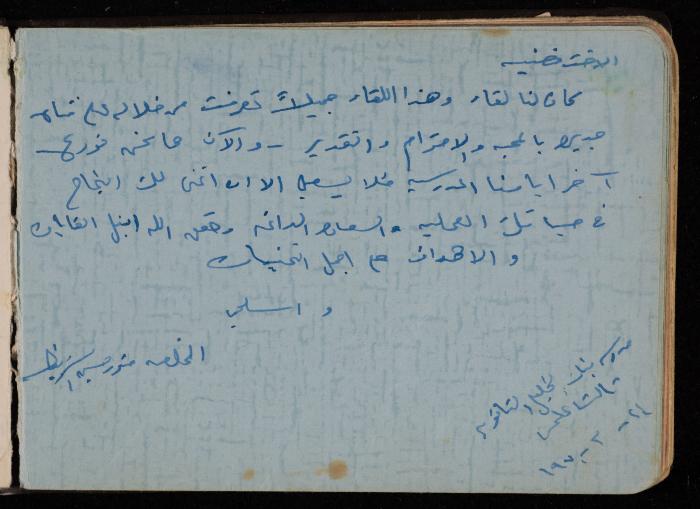 الاخت فضيه
كان لنا لقاء وهذا اللقاء جميلاً تعرفت من خلاله على فتاه
جديره بالمحبه والاحترام والتقدير - والآن ها نحن نودع
آخر ايامنا المدرسيه فلا يسعني الا ان اتمنى لك النجاح
في حياتك العمليه والسعاده الدائمه وحقق الله انبل الغايات
والاهداف مع اجمل التمنيات
واسلمي
المخلصه
مدرسة بنات الثانويه
ثالث علمي